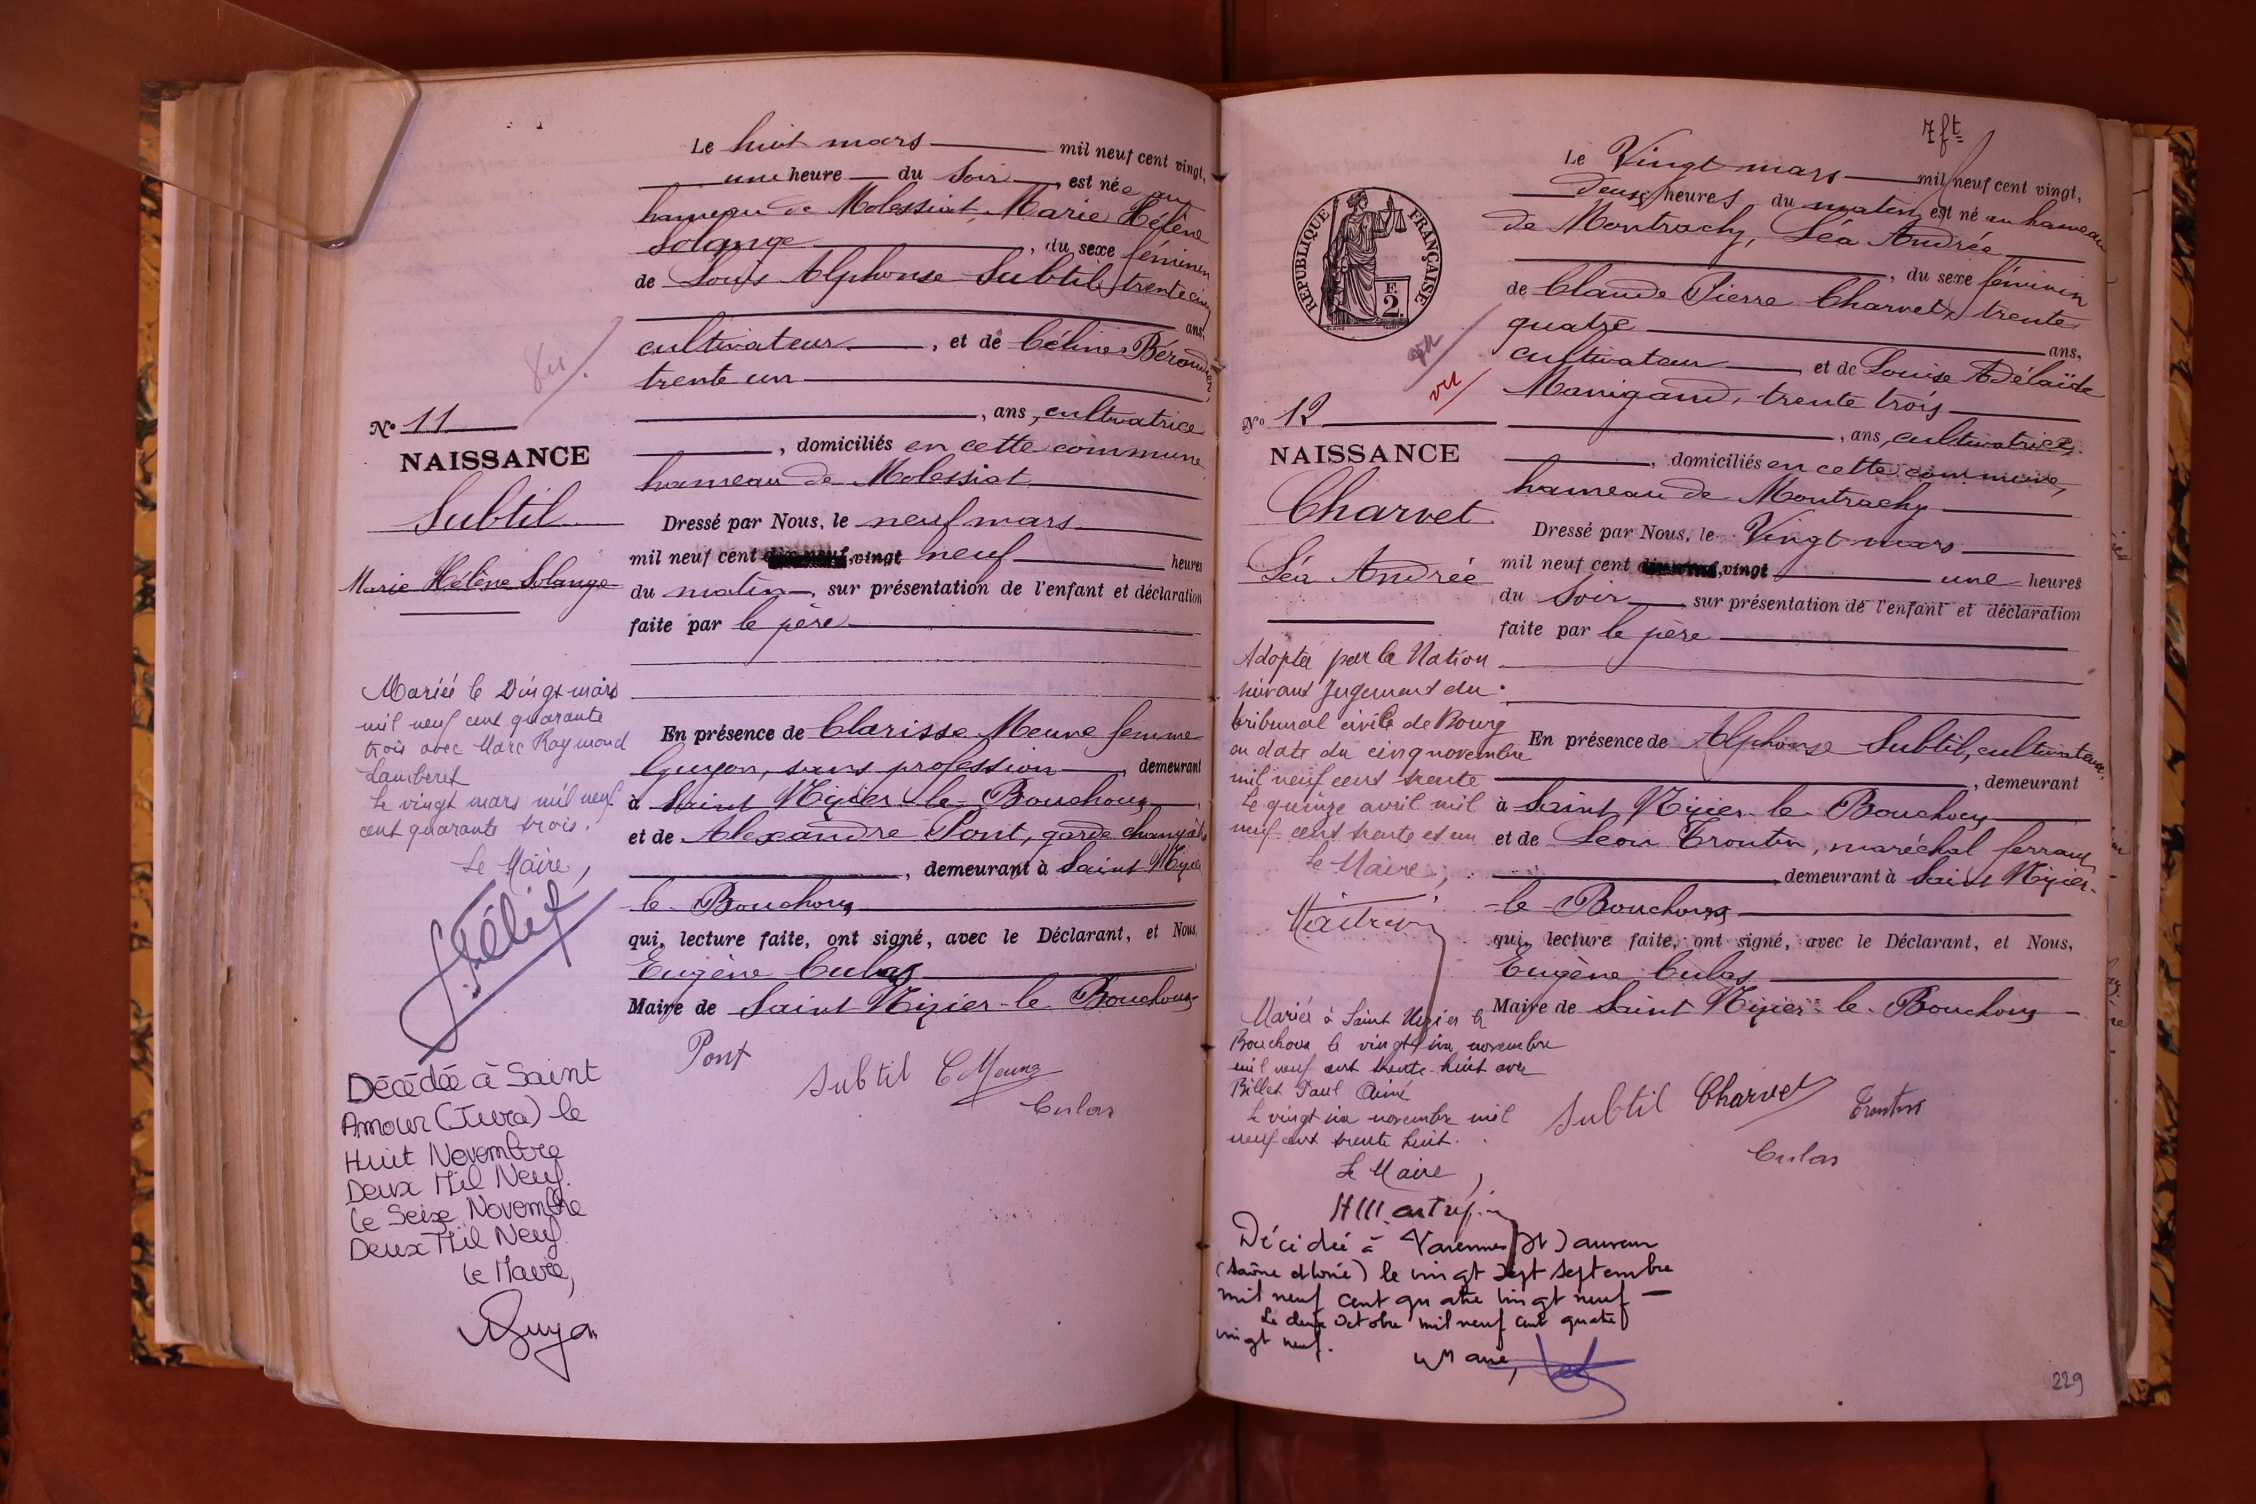 Le huit mars mil neuf cent vingt,
une heure du soir, est née au
hameau de Molessiat, Marie Hélène
Solange, du sexe féminin
de Louis Alphonse Subtil, trente cinq
ans,
cultivateur, et de Céline Béroud
trente un
, ans, cultivatrice
, domiciliés en cette commune
hameau de Molessiat
Dressé par Nous, le neuf mars
mil neuf cent vingt neuf heures
du matin, sur présentation de l'enfant et déclaration
faite par le père
En présence de Clarisse Meune femme
Guyon, sans profession, demeurant
à Saint Nizier-le-Bouchoux,
et de Alexandre Pont, garde champêtre
, demeurant à Saint Nizier
le-Bouchoux
qui, lecture faite, ont signé, avec le Déclarant, et Nous,
Eugène Culas
Maire de Saint Nizier-le-Bouchoux
Pont Subtil C Meune
Culas
8u
No 11
NAISSANCE
Subtil
Marie Hélène Solange
Mariée le Vingt mars
mil neuf cent quarante
trois avec Marc Raymond
Lamberet
Le vingt mars mil neuf
cent quarante trois.
Le Maire,
Décédée à Saint
Amour (Jura) le
Huit Novembre
Deux Mil Neuf.
Le Seize Novembre
Deux Mil Neuf.
Le Maire,
Guyon
7 ft
RÉPUBLIQUE FRANÇAISE
F.
2.
vu
vu
No 12
NAISSANCE
Charvet
Léa Andrée
Adoptée par la Nation
suivant Jugement du
tribunal civil de Bourg
en date du cinq novembre
mil neuf cent trente
Le quinze avril mil
neuf cent trente et un
Le Maire,
Mariée à Saint Nizier le
Bouchoux le vingt six novembre
mil neuf cent trente huit avec
Billet Paul Aimé
Le vingt six novembre mil
neuf cent trente huit.
Le Maire,
Décédée à Varennes St Sauveur
(Saône et Loire) le vingt sept septembre
mil neuf cent quatre vingt neuf —
Le deux Octobre mil neuf cent quatre
vingt neuf.
Le Maire,
Le Vingt mars mil neuf cent vingt,
deux heures du matin, est né au hameau
de Montrachy, Léa Andrée
, du sexe féminin
de Claude Pierre Charvet, trente
quatre ans,
cultivateur, et de Louise Adélaïde
Manigand, trente trois
, ans, cultivatrice,
, domiciliés en cette commune,
hameau de Montrachy
Dressé par Nous, le Vingt mars
mil neuf cent vingt une heures
du soir, sur présentation de l'enfant et déclaration
faite par le père
En présence de Alphonse Subtil, cultivateur,
, demeurant
à Saint Nizier-le-Bouchoux
et de Léon Troutin, maréchal ferrant,
, demeurant à Saint Nizier-
-le-Bouchoux
qui, lecture faite, ont signé, avec le Déclarant, et Nous,
Eugène Culas
Maire de Saint Nizier-le-Bouchoux
Subtil Charvet Troutin
Culas
229